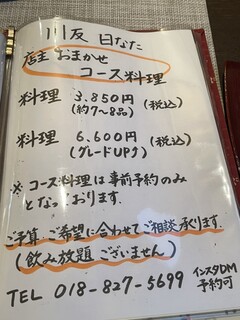 川友 日なた
店主 おまかせ
コース料理
料理 3.850円 (税込)
(約7〜8品)
料理 6.600円 (税込)
(グレードUP↑)
※ コース料理は事前予約のみ
となっております.
ご予算 ご希望に合わせてご相談承ります.
(飲み放題 ございません)
TEL 018-827-5699 インスタDM
予約可